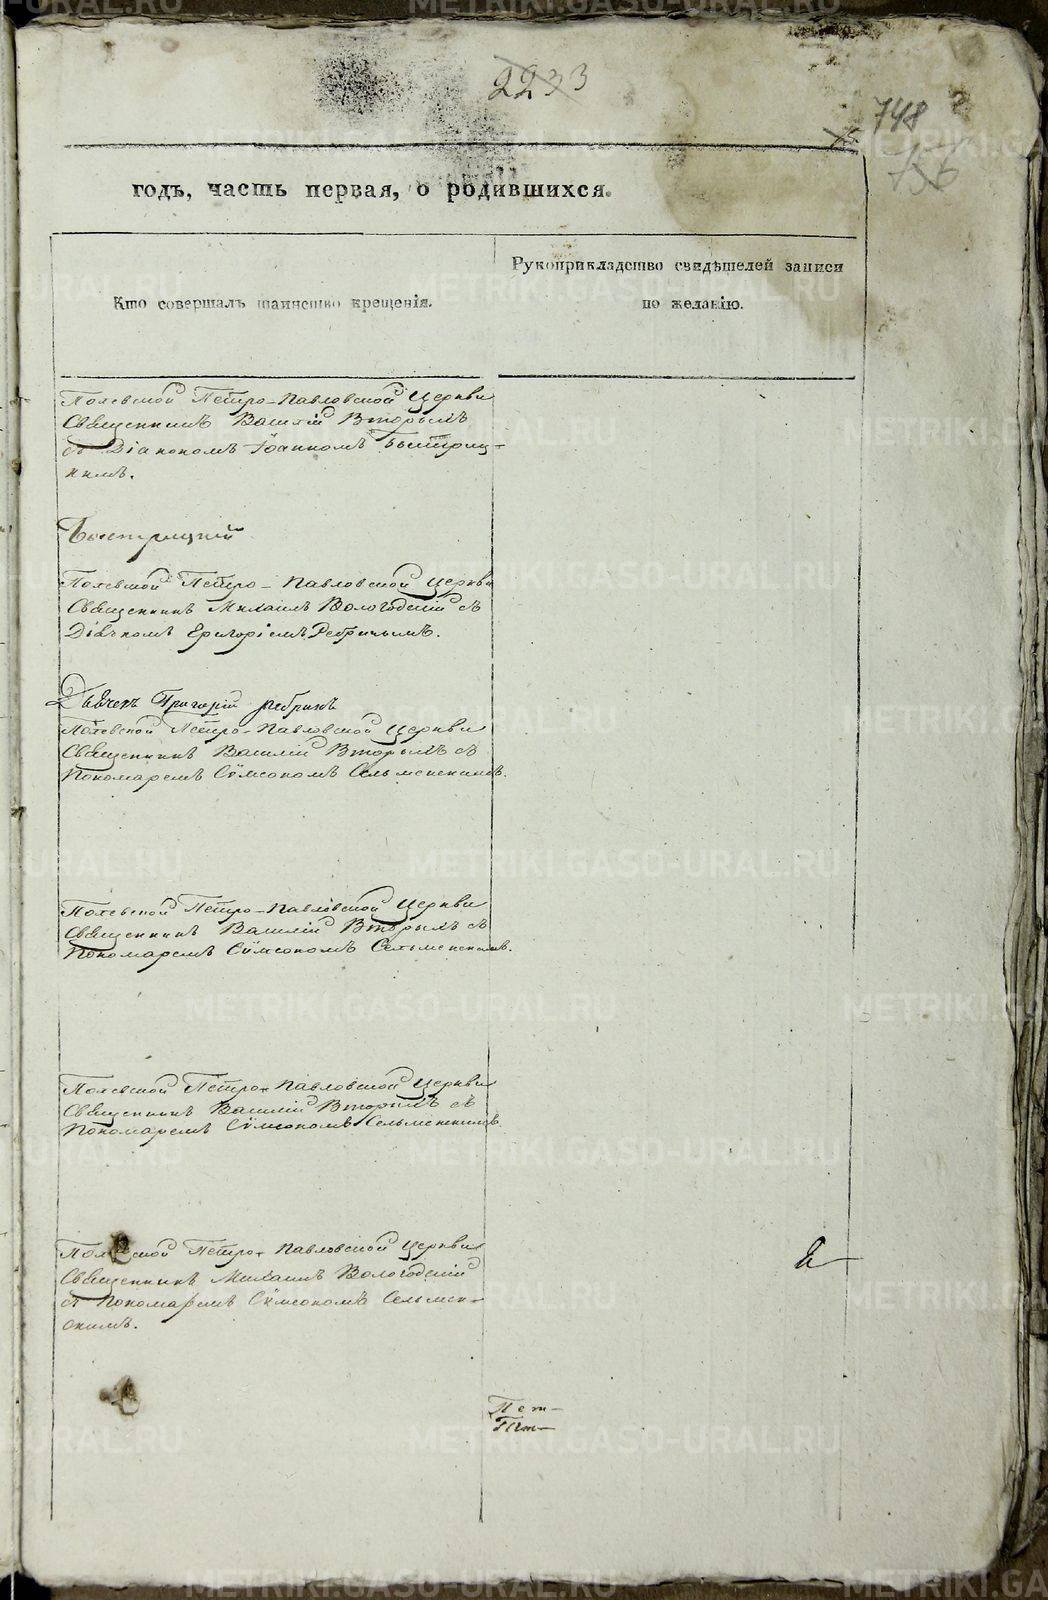 2233
748
736
годъ, часть первая, о родившихся.
Кто совершалъ таинство крещенія.
Рукоприкладство свидѣтелей записи
по желанію.
Полевской Петро-Павловской Церкви
Священникъ Василій Вторыхъ
съ Діакономъ Іоанномъ Быстриц-
кимъ.
Быстрицкій
Полевской Петро-Павловской Церкви
Священникъ Михаилъ Вологодскій съ
Дьячкомъ Григоріемъ Ребринымъ.
Дьячекъ Григорій Ребринъ
Полевской Петро-Павловской Церкви
Священникъ Василій Вторыхъ съ
Пономаремъ Сѵмеономъ Сельменскимъ.
Полевской Петро-Павловской Церкви
Священникъ Василій Вторыхъ съ
Пономаремъ Сѵмеономъ Сельменскимъ.
Полевской Петро-Павловской Церкви
Священникъ Василій Вторыхъ съ
Пономаремъ Сѵмеономъ Сельменскимъ.
Полевской Петро-Павловской Церкви
Священникъ Михаилъ Вологодскій
съ Пономаремъ Сѵмеономъ Сельмен-
скимъ.
METRIKI.GASO-URAL.RU